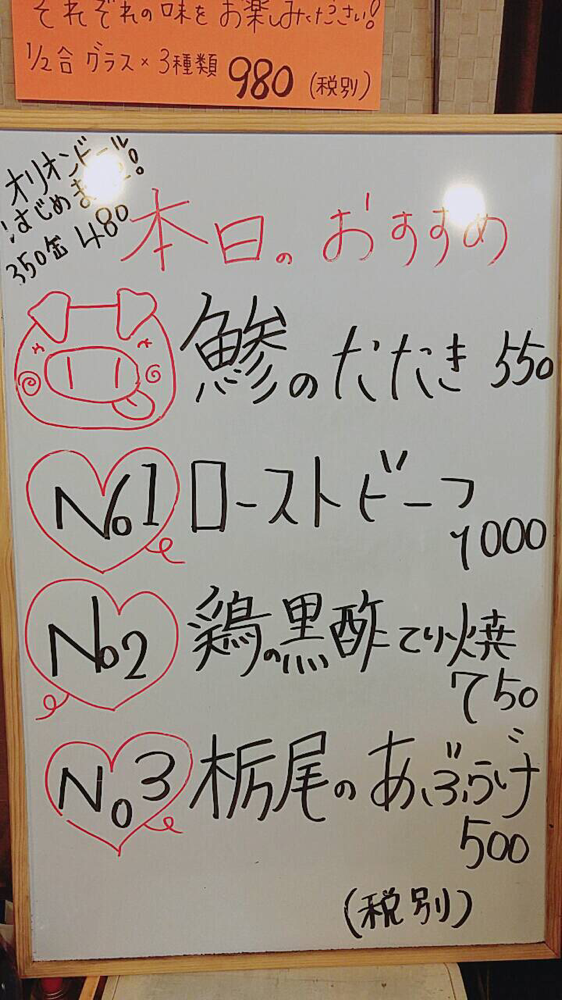 それぞれの味をお楽しみください!
1/2合グラス×3種類 980 (税別)
オリオンビール
はじめました!
350缶 480
本日のおすすめ
鯵のたたき 550
No1 ローストビーフ
1000
No2 鶏の黒酢てり焼
750
No3 栃尾のあぶらげ
500
(税別)